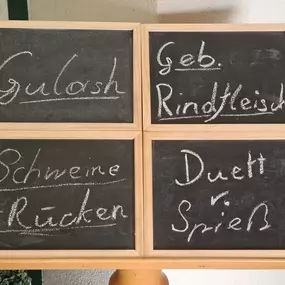 Gulash
Geb.
Rindfleisch
Schweine
Rücken
Duett
v.
Spieß